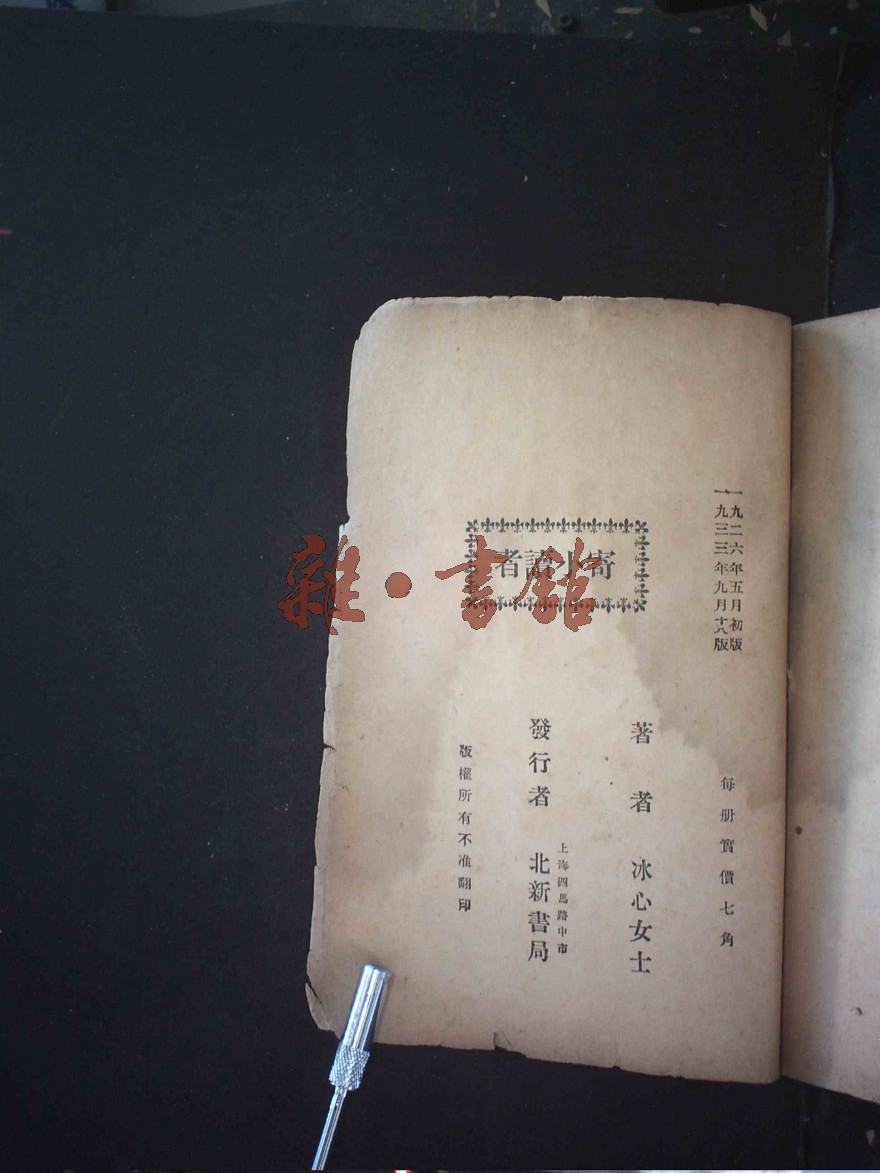 一九二六年五月初版
一九三三年九月十八版
每册實價七角
寄小讀者
著者 冰心女士
發行者 北新書局
上海四馬路中市
版權所有不准翻印
雜·書館